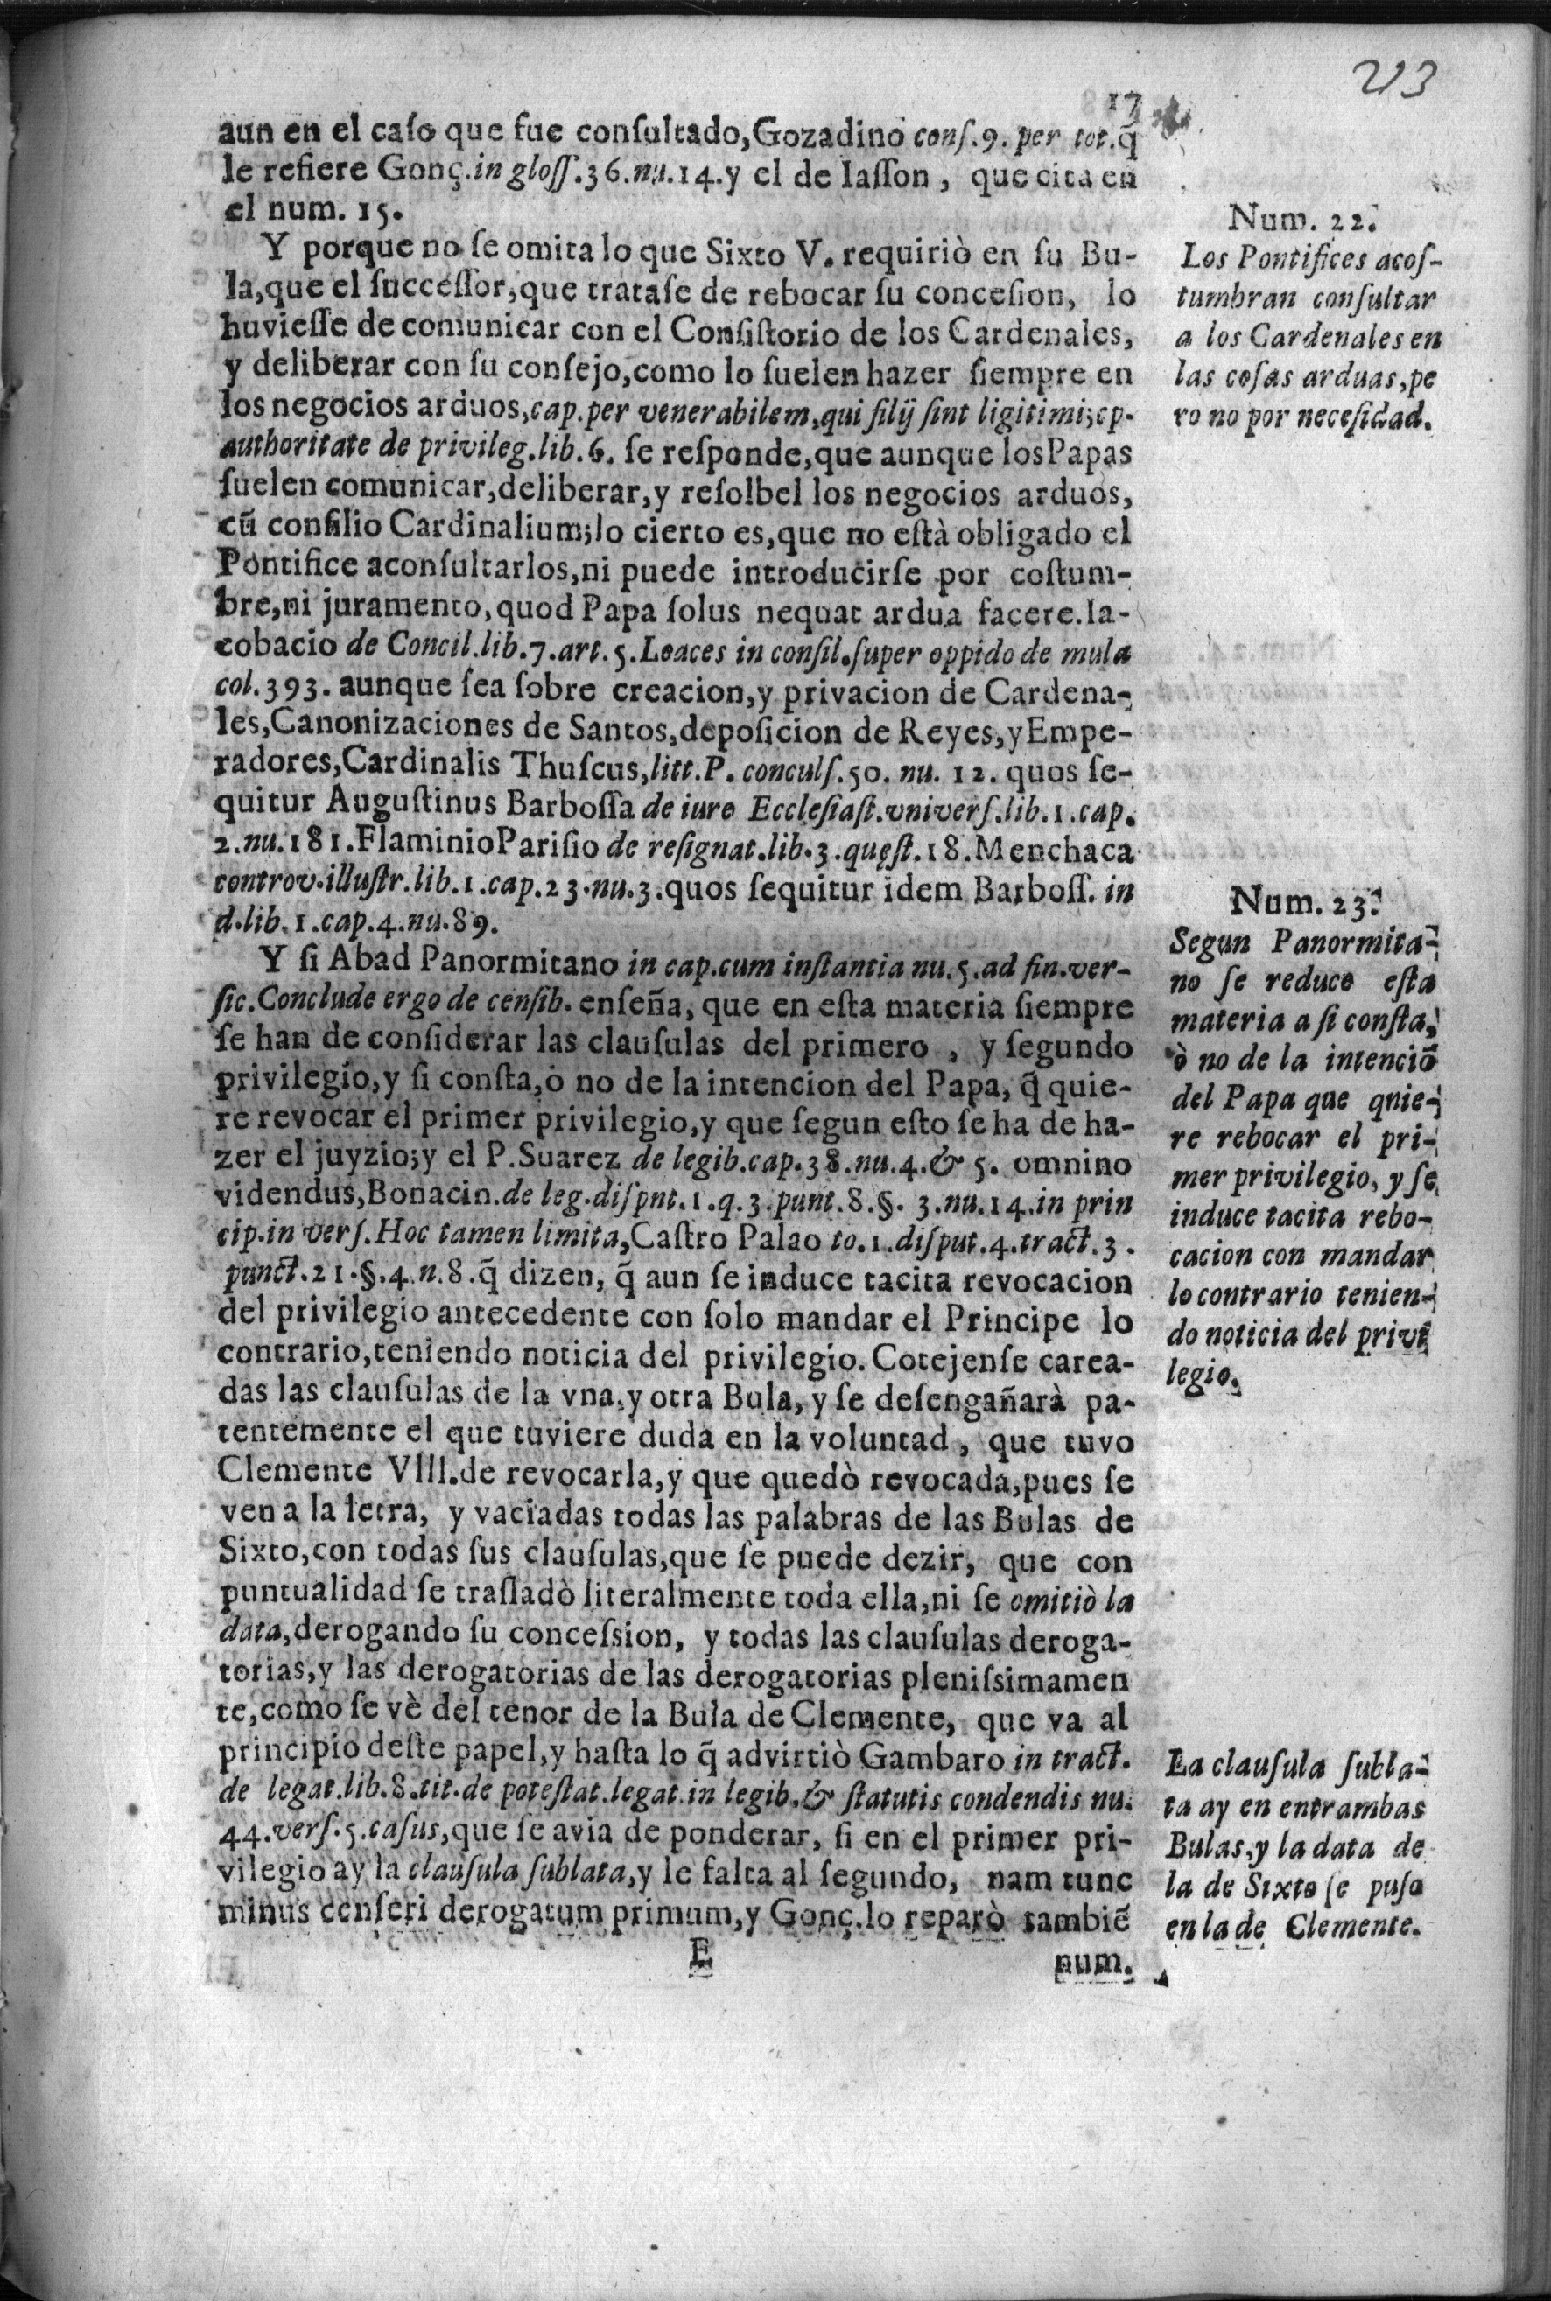 213
17
aun en el caſo que fue conſultado,Gozadino conſ.9. per tot.q̃
le refiere Gonç.in gloſſ.36.nu.14.y el de Iaſſon, que cita en
el num. 15.
Y porque no ſe omita lo que Sixto V. requiriò en ſu Bu-
la,que el ſucceſſor,que trataſe de rebocar ſu conceſion, lo
huvieſſe de comunicar con el Conſiſtorio de los Cardenales,
y deliberar con ſu conſejo,como lo ſuelen hazer ſiempre en
los negocios arduos,cap.per venerabilem,qui filij ſint ligitimi;cp.
authoritate de privileg.lib.6. ſe reſponde,que aunque losPapas
ſuelen comunicar,deliberar,y reſolbel los negocios arduos,
cũ conſilio Cardinalium;lo cierto es,que no eſtà obligado el
Pontifice aconſultarlos,ni puede introducirſe por coſtum-
bre,ni juramento,quod Papa ſolus nequat ardua facere.Ia-
cobacio de Concil.lib.7.art.5.Loaces in conſil.ſuper oppido de mula
col.393. aunque ſea ſobre creacion,y privacion de Cardena-
les,Canonizaciones de Santos,depoſicion de Reyes,yEmpe-
radores,Cardinalis Thuſcus,litt.P. conculſ.50. nu. 12. quos ſe-
quitur Auguſtinus Barboſſa de iure Eccleſiaſt.vniverſ.lib.1.cap.
2.nu.181.FlaminioPariſio de reſignat.lib.3.quęſt.18.Menchaca
controv.illuſtr.lib.1.cap.23.nu.3.quos ſequitur idem Barboſſ. in
d.lib.1.cap.4.nu.89.
Y ſi Abad Panormitano in cap.cum inſtantia nu.5.ad fin.ver-
ſic.Conclude ergo de cenſib. enſeña, que en eſta materia ſiempre
ſe han de conſiderar las clauſulas del primero , y ſegundo
privilegio,y ſi conſta,ò no de la intencion del Papa, q̃ quie-
re revocar el primer privilegio,y que ſegun eſto ſe ha de ha-
zer el juyzio;y el P.Suarez de legib.cap.38.nu.4.& 5. omnino
videndus,Bonacin.de leg.diſpnt.1.q.3.punt.8.§. 3.nu.14.in prin
cip.in verſ.Hoc tamen limita,Caſtro Palao to.1.diſput.4.tract.3.
punct.21.§.4.n.8.q̃ dizen, q̃ aun ſe induce tacita revocacion
del privilegio antecedente con ſolo mandar el Principe lo
contrario,teniendo noticia del privilegio. Cotejenſe carea-
das las clauſulas de la vna,y otra Bula, y ſe deſengañarà pa-
tentemente el que tuviere duda en la voluntad , que tuvo
Clemente VIII.de revocarla,y que quedò revocada,pues ſe
ven a la letra, y vaciadas todas las palabras de las Bulas de
Sixto,con todas ſus clauſulas,que ſe puede dezir, que con
puntualidad ſe trasladò literalmente toda ella,ni ſe omitiò la
data,derogando ſu conceſsion, y todas las clauſulas deroga-
torias,y las derogatorias de las derogatorias pleniſsimamen
te,como ſe vè del tenor de la Bula de Clemente, que va al
principio deſte papel,y haſta lo q̃ advirtiò Gambaro in tract.
de legat.lib.8.tit.de poteſtat.legat.in legib.& ſtatutis condendis nu.
44.verſ.5.caſus,que ſe avia de ponderar, ſi en el primer pri-
vilegio ay la clauſula ſublata,y le falta al ſegundo, nam tunc
minus cenſeri derogatum primum,y Gonç.lo reparò tambiẽ
E
num.
Num. 22.
Los Pontifices acoſ-
tumbran conſultar
a los Cardenales en
las coſas arduas,pe
ro no por neceſidad.
Num. 23.
Segun Panormita-
no ſe reduce eſta
materia a ſi conſta,
ò no de la intenciõ
del Papa que qnie-
re rebocar el pri-
mer privilegio, y ſe
induce tacita rebo-
cacion con mandar
lo contrario tenien-
do noticia del privi
legio.
La clauſula ſubla-
ta ay en entrambas
Bulas,y la data de
la de Sixto ſe puſo
en la de Clemente.